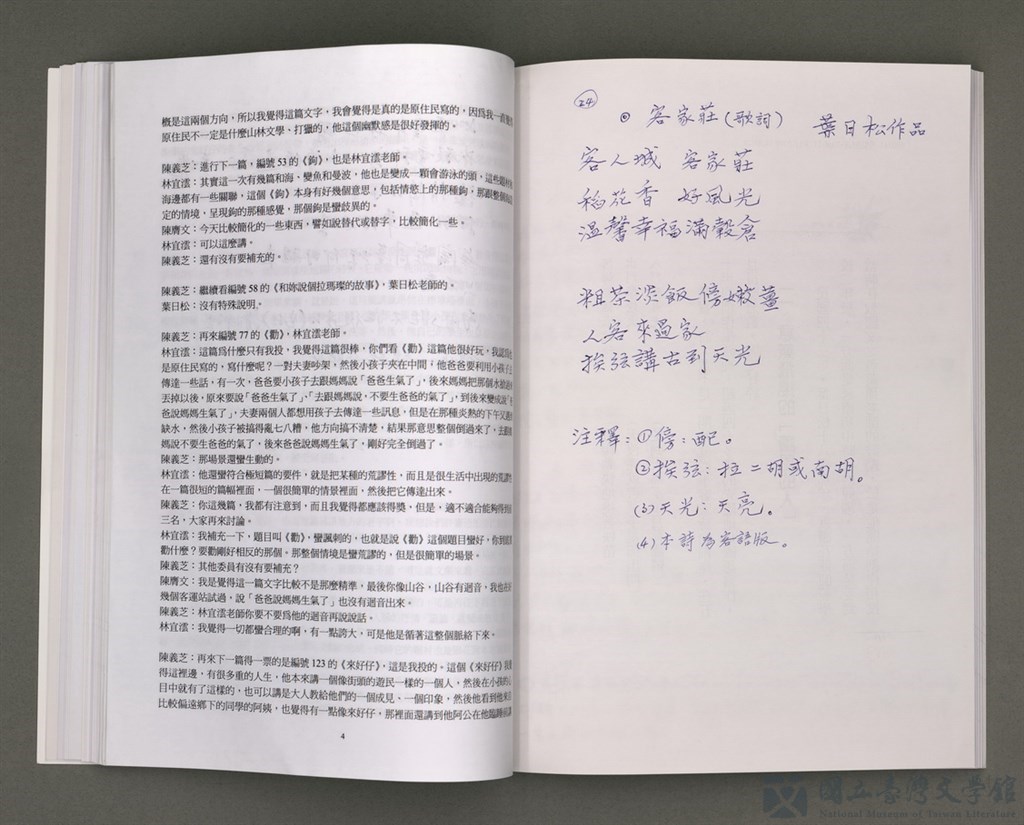 概是這兩個方向，所以我覺得這篇文字，我會覺得是真的是原住民寫的，因為我一直
原住民不一定是什麼山林文學、打獵的，他這個幽默感是很好發揮的。
陳義芝：進行下一篇，編號 53 的《鉤》，也是林宜澐老師。
林宜澐：其實這一次有幾篇和海、變魚和曼波，他也是變成一顆會游泳的頭，這些
海邊都有一些關聯，這個《鉤》本身有好幾個意思，包括情慾上的那種鉤，那跟整個
定的情境，呈現鉤的那種感覺，那個鉤是蠻歧異的。
陳膺文：今天比較簡化的一些東西，譬如說替代或替字，比較簡化一些。
林宜澐：可以這麼講。
陳義芝：還有沒有要補充的。
陳義芝：繼續看編號 58 的《和妳說個拉瑪璨的故事》，葉日松老師的。
葉日松：沒有特殊說明。
陳義芝：再來編號 77 的《勸》，林宜澐老師。
林宜澐：這篇為什麼只有我投，我覺得這篇很棒，你們看《勸》這篇他很好玩，我認為
是原住民寫的，寫什麼呢？一對夫妻吵架，然後小孩子夾在中間，他爸爸要利用小孩子
傳達一些話，有一次，爸爸要小孩子去跟媽媽說「爸爸生氣了」，後來媽媽把那個水
丟掉以後，原來要說「爸爸生氣了」、「去跟媽媽說，不要生爸爸的氣了」，到後來變成說
爸說媽媽生氣了」，夫妻兩個人都想用孩子去傳達一些訊息，但是在那種炎熱的下午又
缺水，然後小孩子被搞得亂七八糟，他方向搞不清楚，結果那意思整個倒過來了，去跟
媽說不要生爸爸的氣了，後來爸爸說媽媽生氣了，剛好完全倒過了。
陳義芝：那場景還蠻生動的。
林宜澐：他還蠻符合極短篇的要件，就是把某種的荒謬性，而且是很生活中出現的荒謬性
在一個很短的篇幅裡面，一個很簡單的情景裡面，然後把它傳達出來。
陳義芝：你這幾篇，我都有注意到，而且我覺得都應該得獎，但是，適不適合能夠得到
三名，大家再來討論。
林宜澐：我補充一下，題目叫《勸》，蠻諷刺的，也就是說《勸》這個題目蠻好，你到底
勸什麼？要勸剛好相反的那個。那整個情境是蠻荒謬的，但是很簡單的場景。
陳義芝：其他委員有沒有要補充？
陳膺文：我是覺得這一篇文字比較不是那麼精準，最後你像山谷，山谷有迴音，我也在
幾個客運站試過，說「爸爸說媽媽生氣了」也沒有迴音出來。
陳義芝：林宜澐老師你要不要為他的迴音再說說話。
林宜澐：我覺得一切都蠻合理的啊，有一點誇大，可是他是循著這整個脈絡下來。
陳義芝：再來下一篇得一票的是編號 123 的《來好仔》，這是我投的。這個《來好仔》我
得這裡邊，有很多重的人生，他本來講一個像街頭的遊民一樣的一個人，然後在小孩的
目中就有了這樣的，也可以講是大人教給他們的一個成見、一個印象，然後他看到他
比較偏遠鄉下的同學的阿姨，也覺得有一點像來好仔，那裡面還講到他阿公在他臨
4
24
◎ 客家莊（歌詞） 葉日松作品
客人城 客家莊
稻花香 好風光
溫馨幸福滿穀倉
粗茶淡飯傍嫩薑
人客來過家
挨弦講古到天光
注釋：①傍：配。
②挨弦：拉二胡或南胡。
(3)天光：天亮。
(4)本詩為客語版。
國立臺灣文學館
National Museum of Taiwan Literature